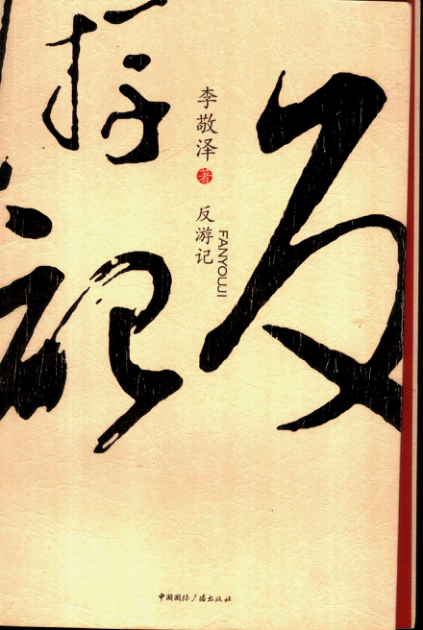 反
游
记
李敬泽
著
反游记
FANYOUJI
中国国际广播出版社